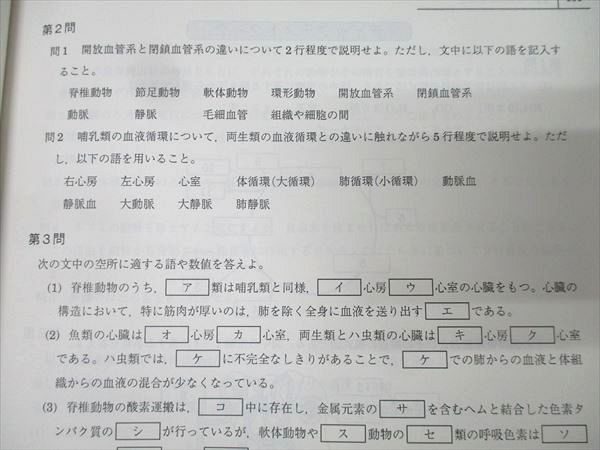 第2問
問1 開放血管系と閉鎖血管系の違いについて2行程度で説明せよ。ただし，文中に以下の語を記入す
ること。
脊椎動物 節足動物 軟体動物 環形動物 開放血管系 閉鎖血管系
動脈 静脈 毛細血管 組織や細胞の間
問2 哺乳類の血液循環について，両生類の血液循環との違いに触れながら5行程度で説明せよ。ただ
し，以下の語を用いること。
右心房 左心房 心室 体循環(大循環) 肺循環(小循環) 動脈血
静脈血 大動脈 大静脈 肺静脈
第3問
次の文中の空所に適する語や数値を答えよ。
(1) 脊椎動物のうち，ア類は哺乳類と同様，イ心房ウ心室の心臓をもつ。心臓の
構造において，特に筋肉が厚いのは，肺を除く全身に血液を送り出すエである。
(2) 魚類の心臓はオ心房カ心室，両生類とハ虫類の心臓はキ心房ク心室
である。ハ虫類では，ケに不完全なしきりがあることで，ケでの肺からの血液と体組
織からの血液の混合が少なくなっている。
(3) 脊椎動物の酸素運搬は，コ中に存在し，金属元素のサを含むヘムと結合した色素タ
ンパク質のシが行っているが，軟体動物やス動物のセ類の呼吸色素はソ